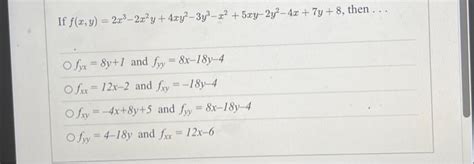 If f(x, y) = 2x³−2x²y + 4xy²−3y³−x² + 5xy−2y²−4x + 7y + 8, then . . .
f_yx = 8y+1 and f_yy = 8x−18y−4
f_xx = 12x−2 and f_xy = −18y−4
f_xy = −4x+8y+5 and f_yy = 8x−18y−4
f_yy = 4−18y and f_xx = 12x−6